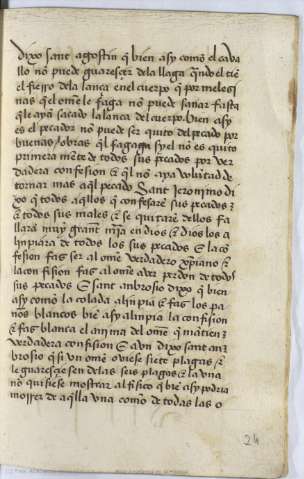 dixo sant agostin q̃ bien asy como el cava
llo nõ puede guaresçer dela llaga q̃ndo el tiẽ
el fierro dela lança en el cuerpo q̃ por melesi
nas q̃l ome le faga nõ puede sanar fasta
que ayã sacado la lança del cuerpo. bien asy
es el pecador nõ puede ser quito del pecado por
buenas obras q̃l faga sy el nõ es quito
primera mẽte de todos sus pecados por ver
dadera confesion ⁊ q̃l nõ aya voluntad de
tornar mas aq̃l pecado Sant Jeronimo di
xo q̃ todos aq̃llos q̃ confesarẽ sus pecados ⁊
⁊ todos sus males ⁊ se quitarẽ dellos fa
llarã muy grant mr̃ia en dios ⁊ dios los a
lynpiara de todos los sus pecados ⁊ la cõ
fesion faz ser al ome verdadero xp̃iano ⁊
la con fision faz al ome aver perdon de todos
sus pecados ⁊ Sant anbrosio dixo q̃ bien
asy como la colada alinpia ⁊ faz los pa
nos blancos biẽ asy alinpia la confision
⁊ faz blanca el anima del ome q̃ mãtien ⁊
verdadera con fision ⁊ avn dixo sant an
brosio q̃ si vn ome oviese siete plagas ⁊
le guaresçiesen delas seis plagas ⁊ la vna
nõ quisiese mostrar al fisico q̃ biẽ asy podria
morrer de aq̃lla vna como de todas las o
24